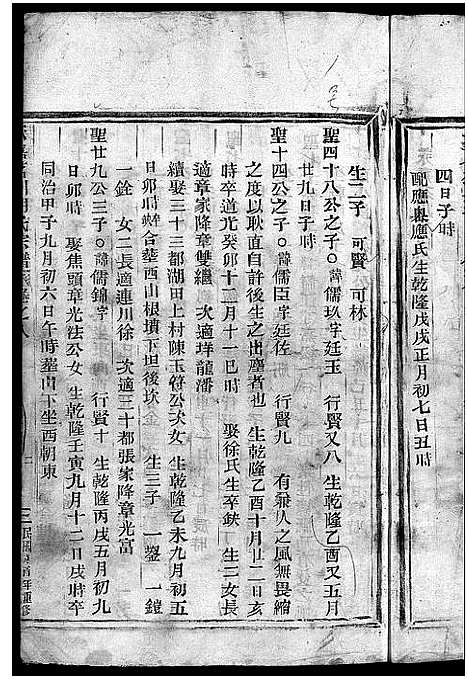 四日子時
配應奧應氏生乾隆戊戌正月初七日丑時
生二子　可賢　可林
聖四十八公之子○諱儒玖字廷玉　行賢又八　生乾隆乙酉又五月
廿九日子時
聖十四公之子○諱儒臣字廷佐　行賢九　有乘人之風無畏縮
之度以耿直自許後生之出塵者也　生乾隆乙酉十月廿二日亥
時卒道光癸卯十二月十一巳時　娶徐氏生卒缺　生二女長
適章家降章雙繼　次適垟龍潘
續娶三十三都湖田上村陳玉簪公次女　生乾隆乙未九月初五
日卯時　合葬西山根墳下坦後坎　生三子　一鑒　一鐘
一銓　女二長適連川徐　次適三十都張家降章光富
聖廿九公三子○諱儒錦字　行賢十　生乾隆丙戌五月初九
日卯時　娶焦頭章光法公女　生乾隆壬寅九月十二日戌時卒
同治甲子九月初六日午時葬山下坐酉朝東